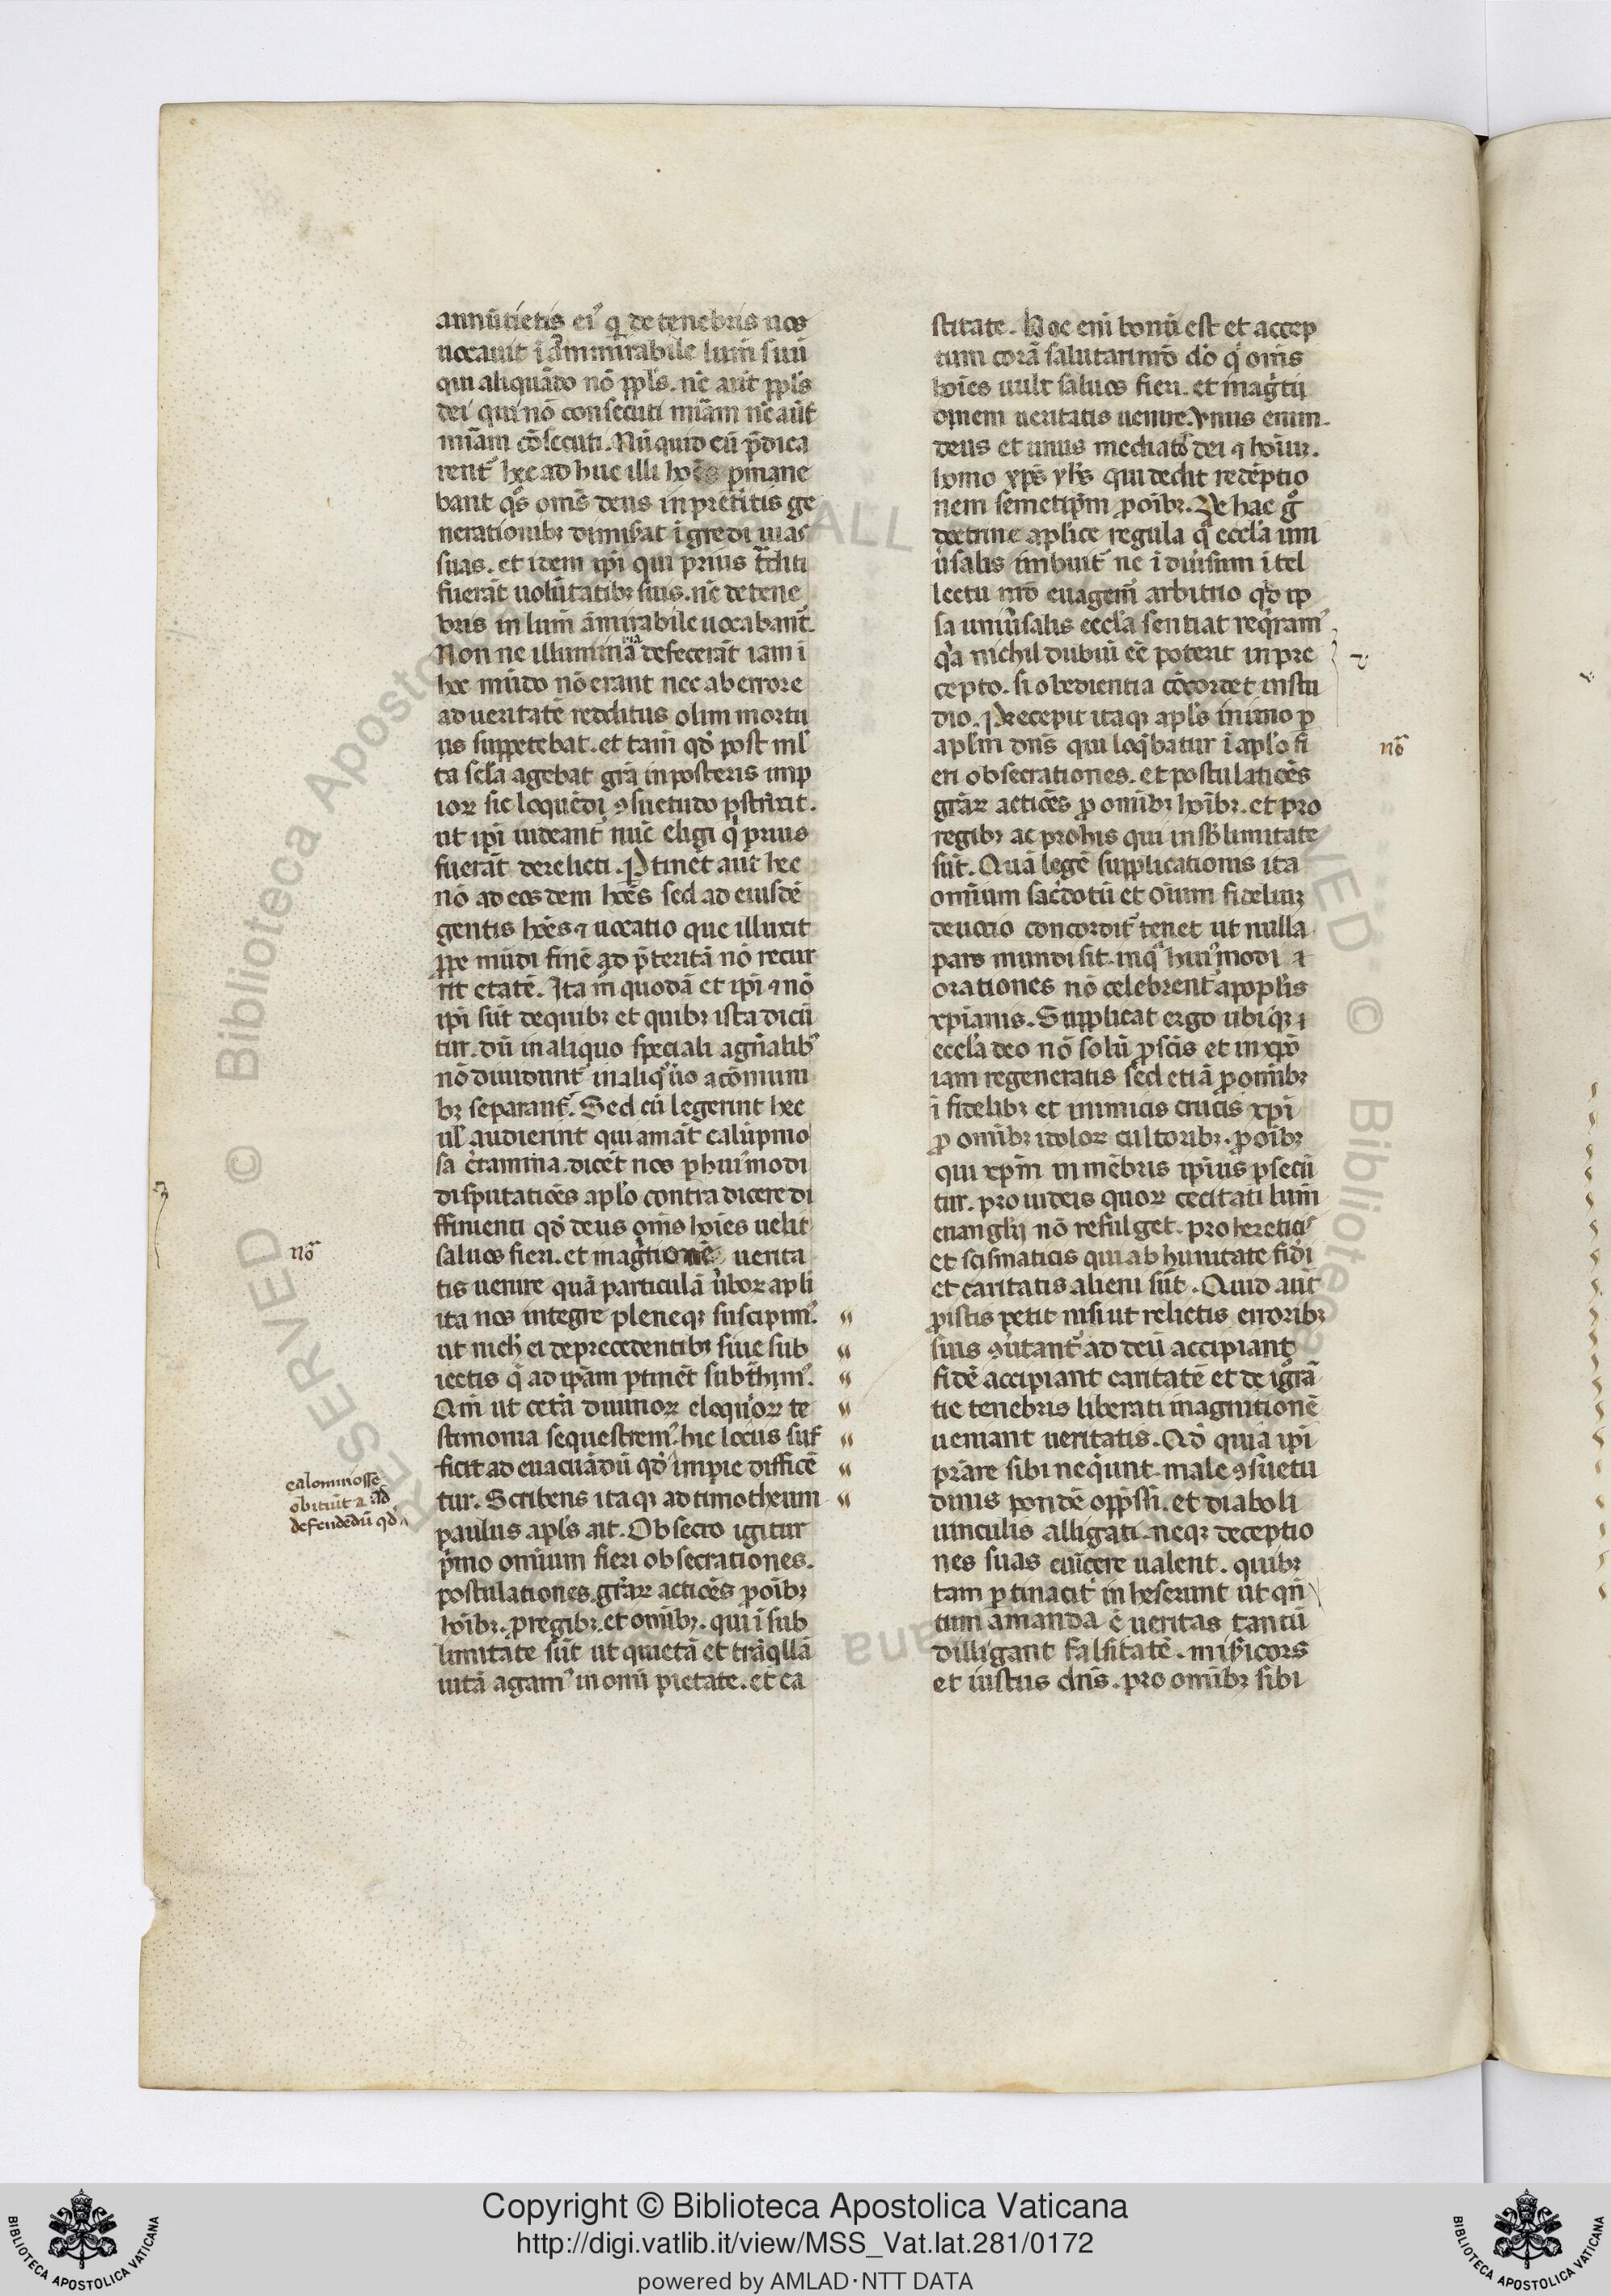 annũtietis ei᷒ q̇ de tenebris uos
uocauit ĩ ammirabile lum̃ suũ
qui aliquãdo nõ ppl̃s. nc̃ aut̃ ppl̃s
dei qui nõ consecuti miãm nc̃ aũt
miãm cõsecuti. Nũquid cũ p̃dica
rent᷒ hec adhuc illi hoĩes pmane
bant q̃s om̃s deus in pretitis ge
nerationibꝫ dimisat ĩgredi uias
suas. et idem ip̃i qui prius t̃diti
fuerãt uolũtatibꝫ suis. nc̃ de tene
bris in lum̃ ãmirabile uocabant᷒.
Non ne illi inuia defecerãt iam ĩ
hoc mũdo nõ erant nec ab errore
ad ueritatẽ redditus olim mortu
us suppetebat. et tam̃ qđ post ml̃
ta scl̃a agebat gr̃a in posteris imp
ioꝝ sic loquẽdi ꝯsuetudo pstrĩxit.
ut ip̃i uideant᷒ nũc eligi q̇ prius
fuerãt derelicti. Ꝑtinet aut̃ hec
nõ ad eosdem hoẽs sed ad eiusdẽ
gentis hoẽs ⁊ uocatio que illuxit
ꝓpe mũdi finẽ ad p̃teritã nõ recur
rit etatẽ. Ita in quodã et ip̃i ⁊ nõ
ip̃i sũt de quibꝫ et quibꝫ ista dicũ
tur. dũ in aliquo speciali a gñalibꝫ
nõ diuidunt᷒ in aliq̇ uo a cõmuni
bꝫ separant᷒. Sed cũ legerint hec
ul̃ audierint qui amãt calũpnio
sa c̃tamina. dicẽt nos p hui᷒modi
disputatiões apl̃o contradicere di
ffinienti qđ deus om̃s hoĩes uelit
saluos fieri. et in ag̃tionẽ uerita
nõ᷒
tis uenire quã particulã ũboꝝ apl̃i
ita nos integre pleneqꝫ suscipim᷒.
ut nich̃ ei de precedentibꝫ siue sub
iectis q̃ ad ip̃am ptinẽt subt̃him᷒.
Qm̃ ut cet̃a diuinoꝝ eloquioꝝ te
stimonia sequestrem᷒. hic locus suf
ficit ad euacuãdũ qđ impie difficẽ
calomniosse
obitiũt ⁊ ad
defendẽdũ qđ
tur. Scribens itaqꝫ ad timotheum
paulus apl̃s ait. Obsecro igitur
p̃mo omnium fieri obsecrationes.
postulationes. gr̃aꝝ actiões ꝓ oĩbꝫ
hoĩbꝫ. ꝓ regibꝫ. et omĩbꝫ. qui ĩ sub
limitate sũt ut quietã et trãq̇llã
uitã agam᷒ in omĩ pietate. et ca
stitate. Hoc eni bonũ est et accep
tum corã salutari nr̃o do q̇ om̃s
hoĩes uult saluos fieri. et in ag̃tiõ
omnem ueritatis uenire. Vnus enim
deus et unus mediator dei ⁊ hoĩuꝫ.
homo xp̃s yh̃s qui dedit redẽptio
nem semetip̃m ꝓ oĩbꝫ. De hac g̃
doctrine aplice regula q̃ eccl̃a uni
ũsalis imbuit᷒ ne ĩ diũsum ĩtel
lectu nr̃o euagem᷒ arbitrio qđ ip
sa uniũsalis eccl̃a sentiat req̇ram᷒
q̃a nichil dubii eẽ poterit in pre
cepto. si obedientia cõcordet in stu
dio. Precepit itaqꝫ apl̃s immo p
apl̃m dñs qui loq̃batur ĩ apl̃o fi
nõ᷒
eri obsecrationes. et postulatiões
gr̃aꝝ actiões ꝓ omĩbꝫ hoĩbꝫ. et pro
regibꝫ ac pro his qui in sblimitate
sũt. Quã legẽ supplicationis ita
omnium sac̃dotũ et oĩum fideliuꝫ
deuocio concordit᷒ tenet ut nulla
pars mundi sit. in q̃ hui᷒modi
orationes nõ celebrent᷒ a popl̃is
xp̃ianis. Supplicat ergo ubiqꝫ
eccl̃a deo nõ solũ ꝓ scĩs et in xp̃o
iam regeneratis sed etiã ꝓ omĩbꝫ
ĩfidelibꝫ et inimicis crucis xp̃i
ꝓ omĩbꝫ idoloꝝ cultoribꝫ. ꝓ oĩbꝫ
qui xp̃m in mẽbris ip̃ius psecũ
tur. pro iudeis quoꝝ cecitati lum̃
euanglij nõ refulget. pro hereticis
et scismaticis qui ab hunitate fid̃i
et caritatis alieni sũt. Quid aut̃
ꝓ istis petit nisi ut relictis erroribꝫ
suis ꝯũtant᷒ ad deũ accipiant
fidẽ accipiant caritatẽ et de igr̃ã
tie tenebris liberati in agnitionẽ
ueniant ueritatis. Qđ quia ip̃i
prãre sibi neq̇unt. male ꝯsuetu
dinis ponđe opp̃ssi. et diaboli
uinculis alligati. neqꝫ deceptio
nes suas euĩcere ualent. quibꝫ
tam ptinacit᷒ inheserunt ut qñ
tum amanda ẽ ueritas tantũ
dilligant falsitatẽ. mis̃icors
et iustus dñs. pro omĩbꝫ sibi
Copyright © Biblioteca Apostolica Vaticana
http://digi.vatlib.it/view/MSS_Vat.lat.281/0172
powered by AMLAD·NTT DATA